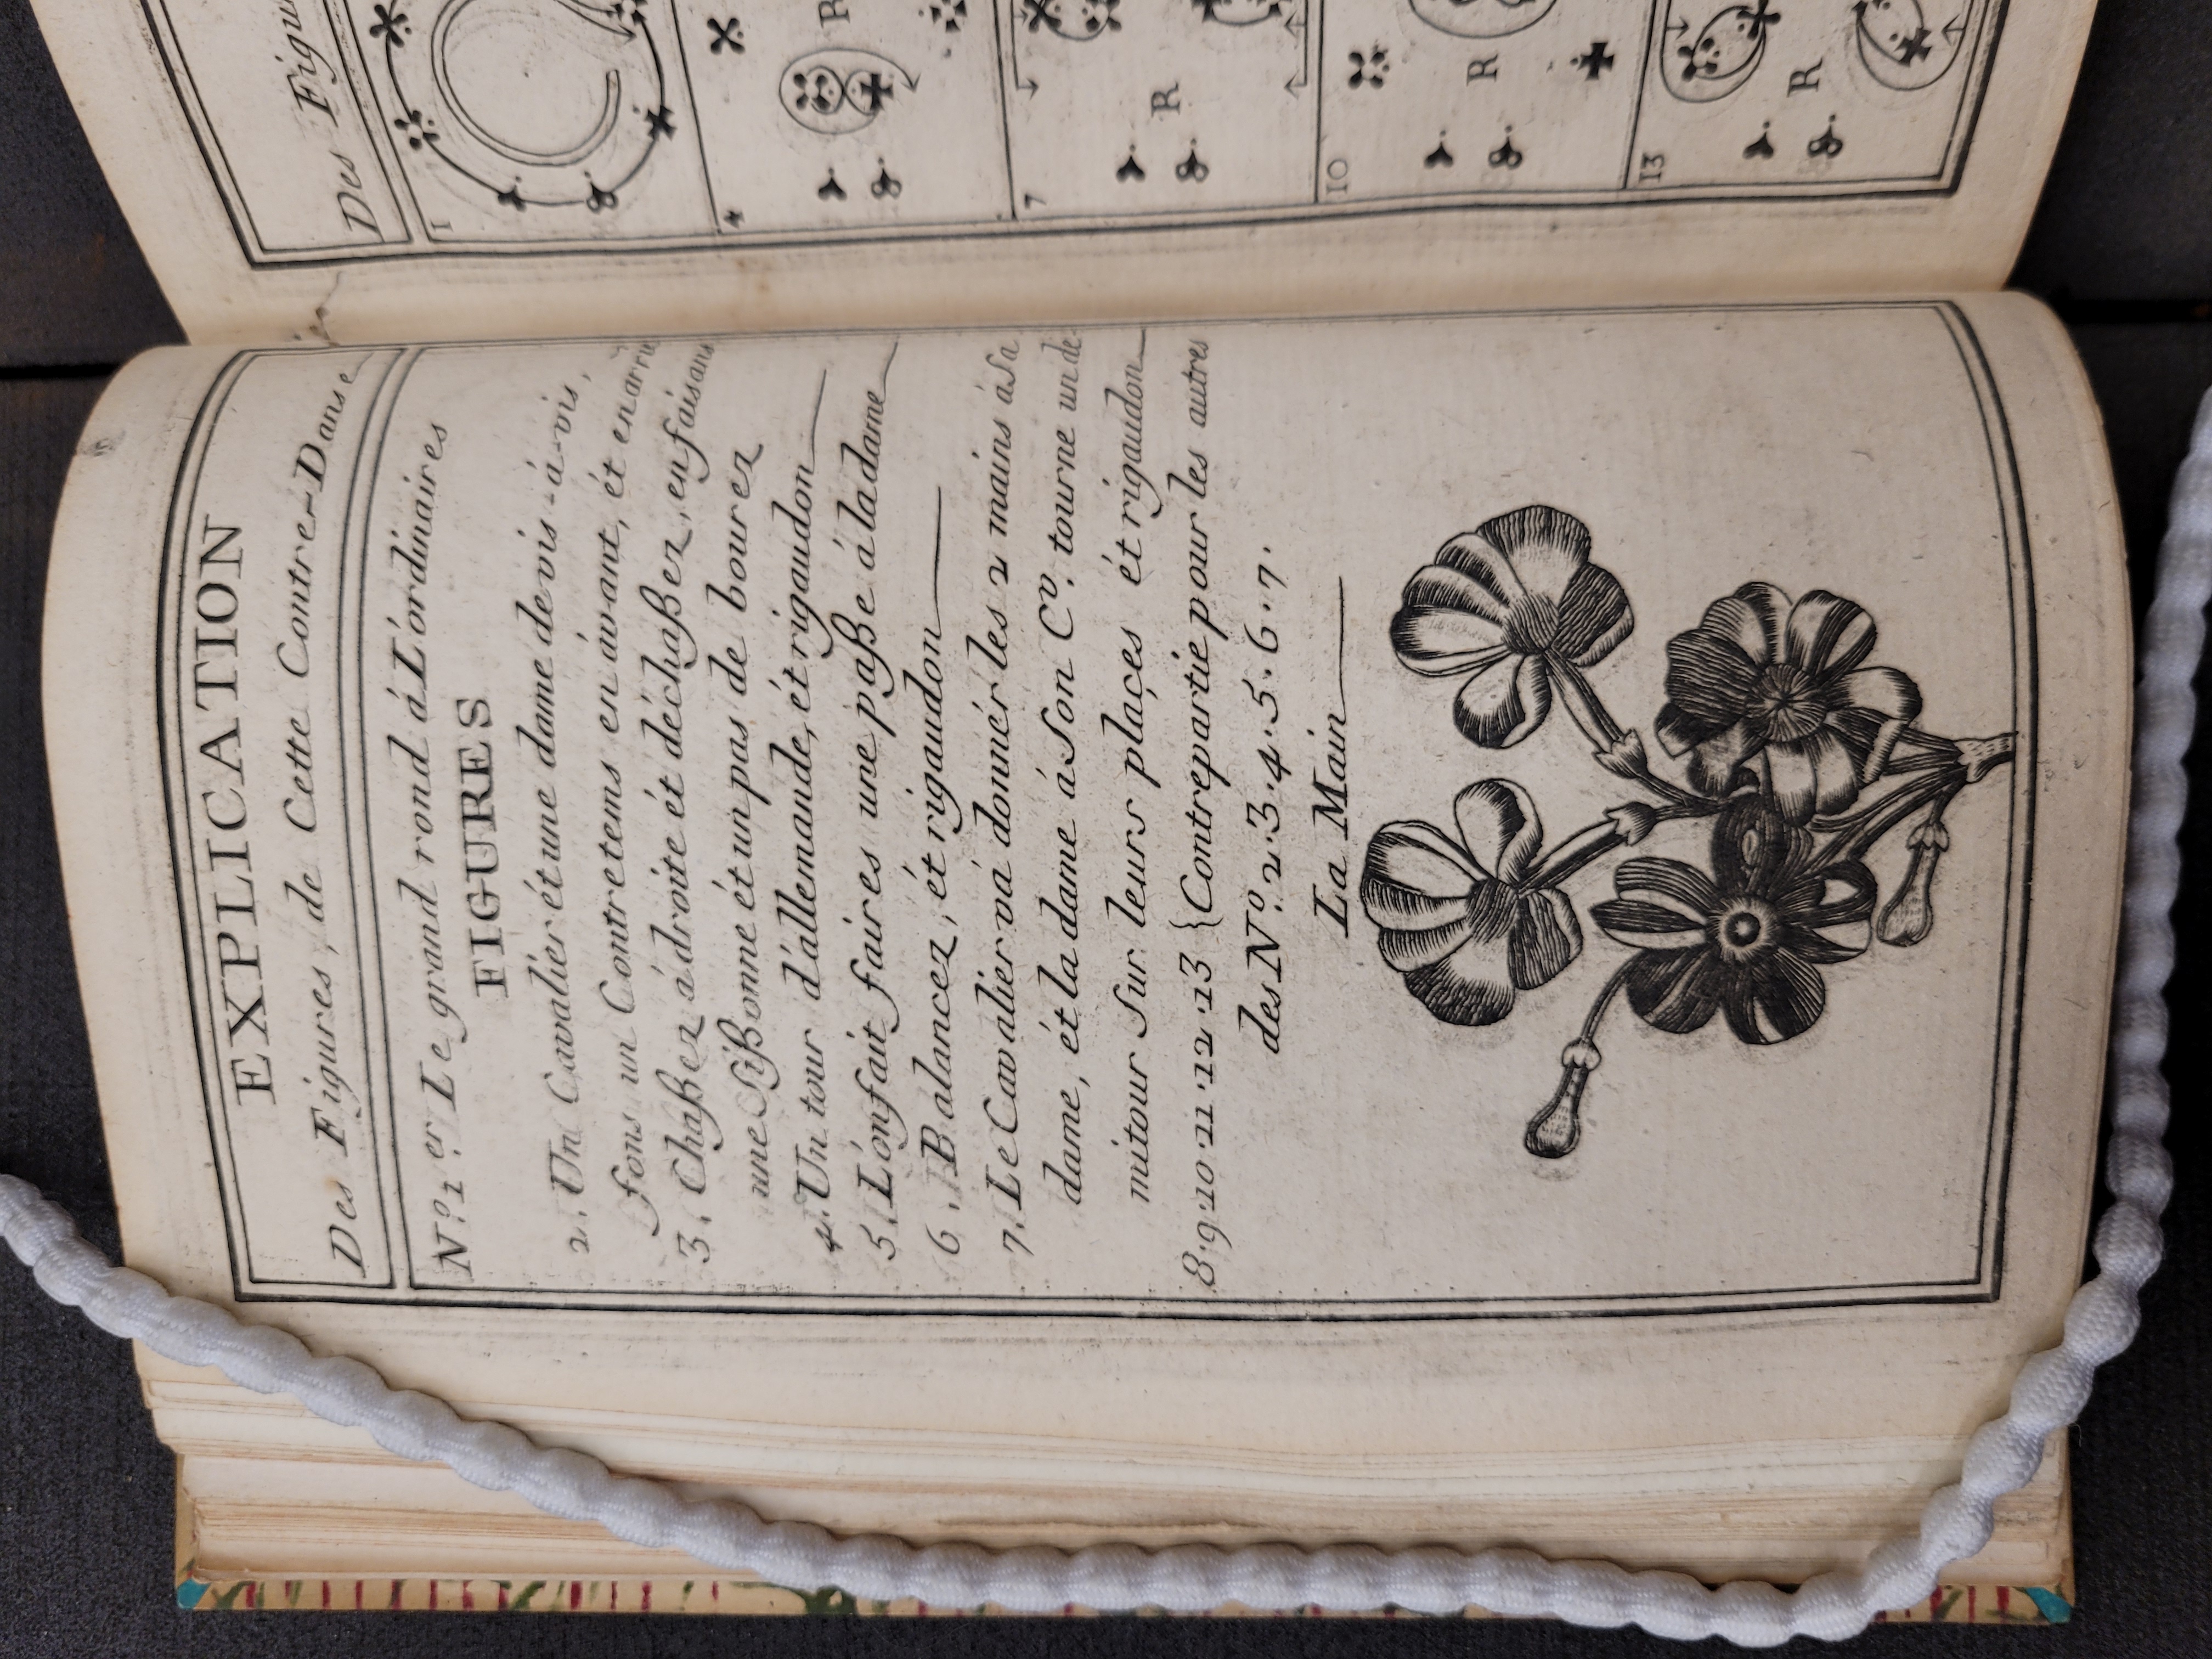 EXPLICATION
Des Figures, de Cette Contre-Danse
N.º 1.er Le grand rond á L'ordinaires
FIGURES
2. Un Cavaliér ét une dame de vis-á-vis,
fons un Contretems en avant, ét en arrie
3. Chaßez á droite ét déchaßez, en faisans
une Sißonne ét un pas de bourez
4. Un tour d'allemande, ét rigaudon
5. L'ón fait faires une paße á la dame
6. Balancez, ét rigaudon
7. Le Cavaliér vá donnér les 2 mains á Sa
dame, ét la dame á Son C.v tourne un de
mitour Sur leurs plaçes ét rigaudon
8.9.10.11.12.13 { Contrepartie pour les autres
des N.º 2.3.4.5.6.7.
La Main
Des Figu
1
4
R
7
R
10
R
13
R